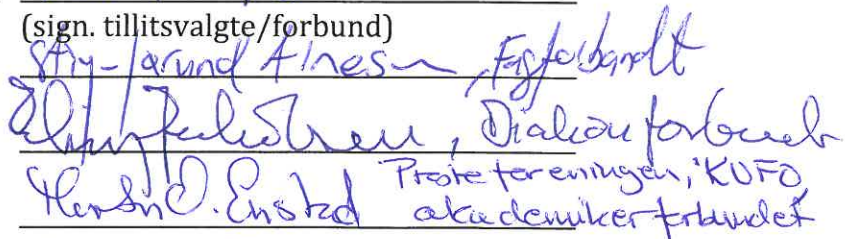 (sign. tillitsvalgte/forbund)
Stig-Jarund Alnes, Fagforbundet
, Diakonforbundet
O. Enstad Presteforeningen, KUFO,
akademikerforbundet